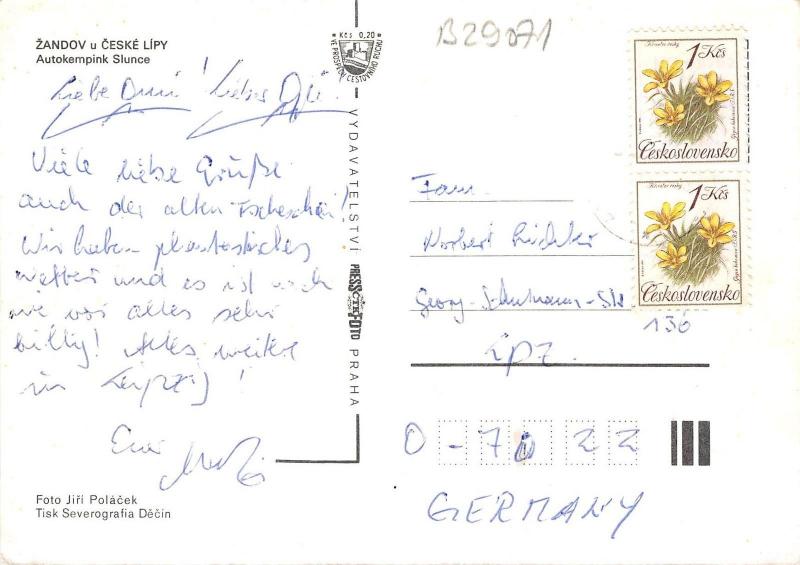 ŽANDOV u ČESKÉ LÍPY
Autokempink Slunce
Kčs 0,20
VE PROSPĚCH CESTOVNÍHO RUCHU
B29071
Kčs 1
Československo
1 Kčs
Československo
Liebe ! Liebes
Viele liebe Grüße
auch der alten
Wir haben phantastisches
Wetter und es ist noch
wie vor alles sehr
billig! Alles weitere
in Leipzig!
Euer
VYDAVATELSTVÍ PRESSFOTO PRAHA
Fam.
Norbert
Georg-Schumann-Str
136
Lpz.
O-7022
GERMANY
Foto Jiří Poláček
Tisk Severografia Děčín